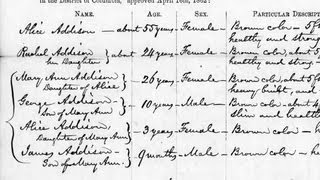 in the District of Columbia, approved April 16th, 1862:
NAME. AGE. SEX. PARTICULAR DESCRIPT
Alice Addison — about 55 years - Female - Brown color - 5 f
healthy and strong
Rachel Addison } about 24 years - Female - Brown color about 5
her Daughter healthy and strong
Mary Ann Addison } - 26 years - Female - Brown color about 5
Daughter of Alice heavy built, and
George Addison - } - 10 years - Male - Brown color - about 4
Son of Mary Ann slim and health
Alice Addison } - 3 years - Female - Brown color - h
Daughter of Mary Ann
James Addison - } - 9 months - Male - Brown color - hea
Son of Mary Ann.